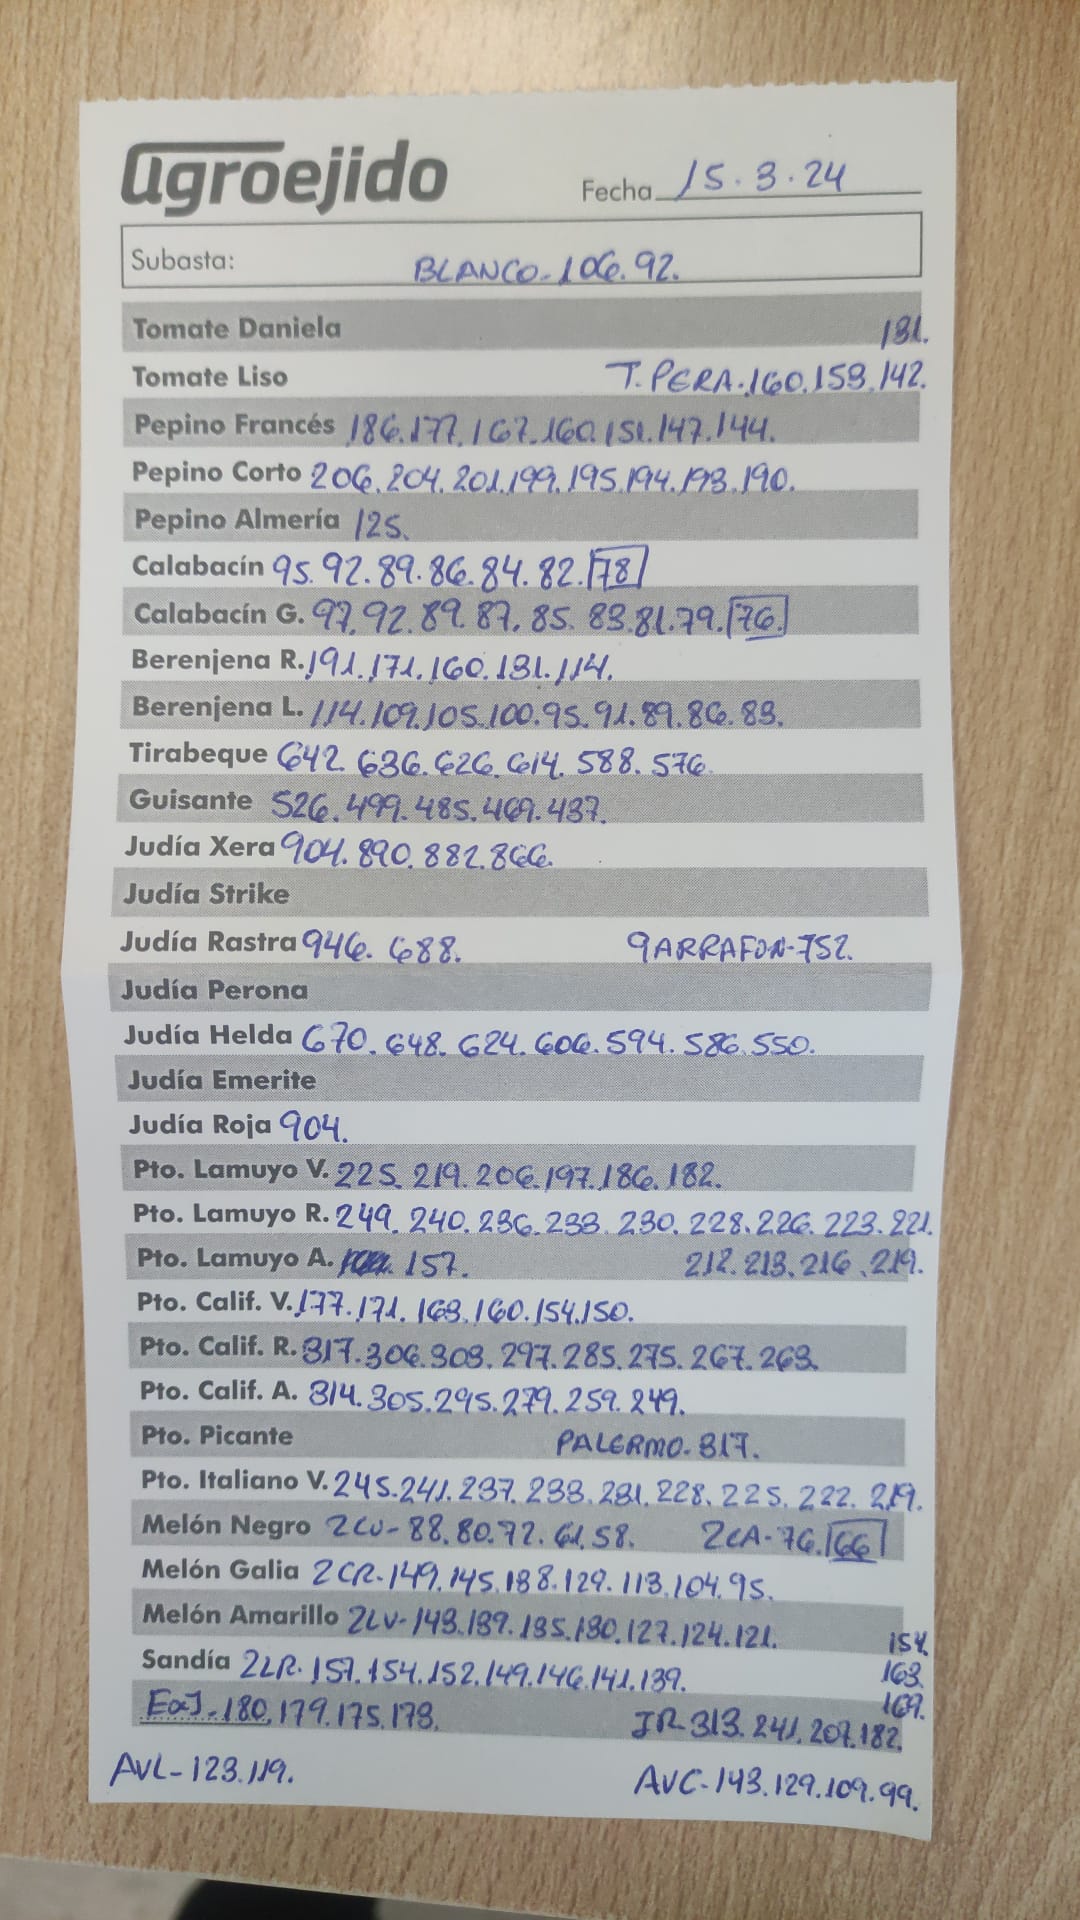 agroejido
Fecha 15.3.24
Subasta: BLANCO-106.92.
Tomate Daniela 131.
Tomate Liso T. PERA.160.153.142.
Pepino Francés 186.177.167.160.151.147.144.
Pepino Corto 206.204.201.199.195.194.193.190.
Pepino Almería 125.
Calabacín 95.92.89.86.84.82.78
Calabacín G. 97.92.89.87.85.83.81.79.76.
Berenjena R. 191.171.160.131.114.
Berenjena L. 114.109.105.100.95.91.89.86.83.
Tirabeque 642.636.626.614.588.576.
Guisante 526.499.485.469.437.
Judía Xera 904.890.882.866.
Judía Strike
Judía Rastra 946.688. GARRAFON-752.
Judía Perona
Judía Helda 670.648.624.606.594.586.550.
Judía Emerite
Judía Roja 904.
Pto. Lamuyo V. 225.219.206.197.186.182.
Pto. Lamuyo R. 249.240.236.233.230.228.226.223.221.
Pto. Lamuyo A. 157. 212.213.216.219.
Pto. Calif. V. 177.171.163.160.154.150.
Pto. Calif. R. 317.306.303.297.285.275.267.263.
Pto. Calif. A. 314.305.295.279.259.249.
Pto. Picante PALERMO-317.
Pto. Italiano V. 245.241.237.233.231.228.225.222.219.
Melón Negro 2CV-88.80.72.61.58. 2CA-76.66
Melón Galia 2CR-149.145.138.129.113.104.95.
Melón Amarillo 2LV-143.139.135.130.127.124.121.
154.
Sandía 2LR.157.154.152.149.146.141.139. 163.
169.
180.179.175.173. JR-313.241.207.182.
AVL-123.119. AVC-143.129.109.99.